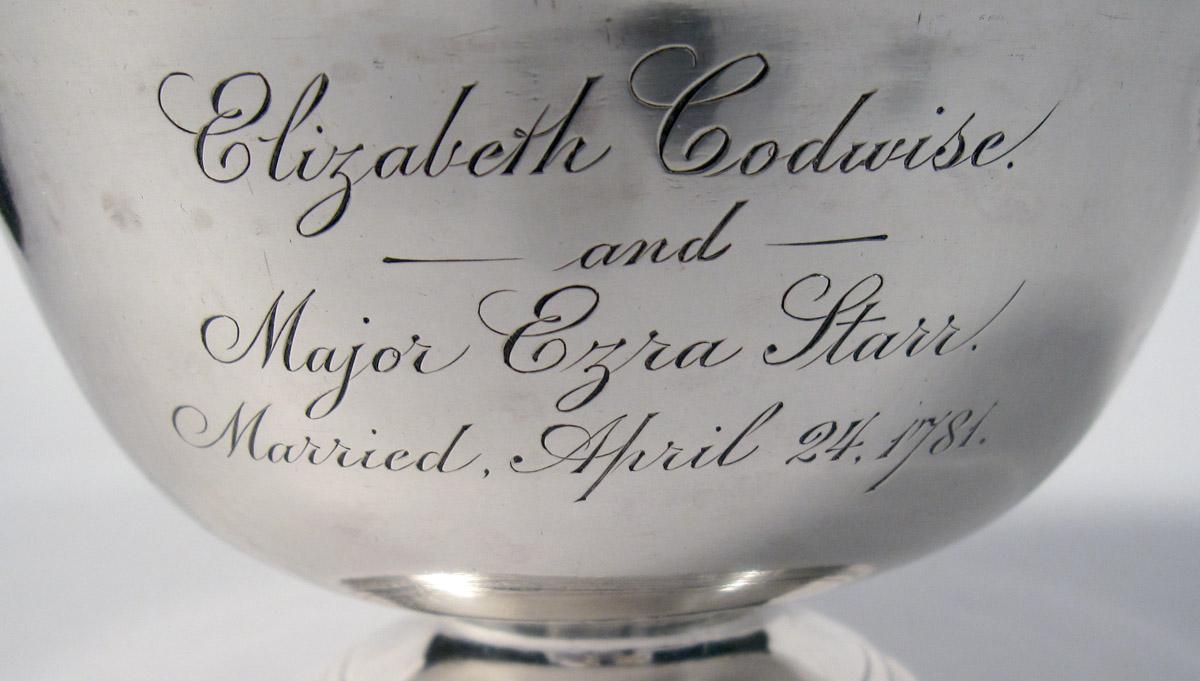 Elizabeth Codwise.
— and —
Major Ezra Starr.
Married, April 24, 1781.